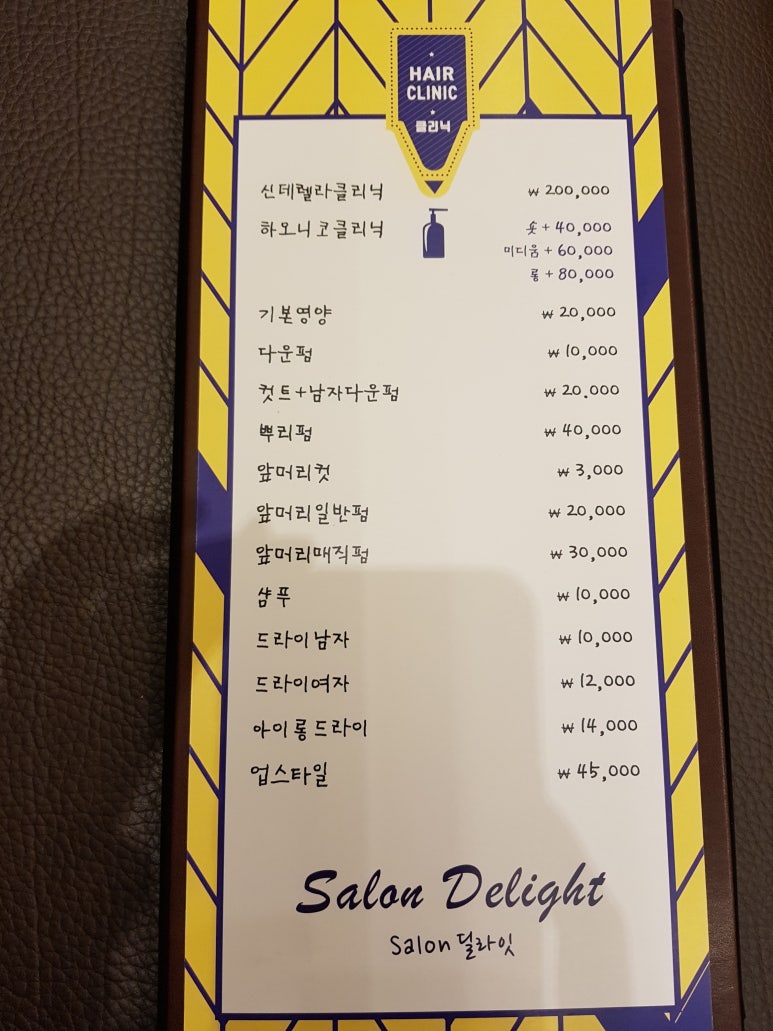 HAIR
CLINIC
클리닉
신데렐라클리닉 ₩ 200,000
하오니코클리닉 숏 + 40,000
미디움 + 60,000
롱 + 80,000
기본영양 ₩ 20,000
다운펌 ₩ 10,000
컷트+남자다운펌 ₩ 20.000
뿌리펌 ₩ 40,000
앞머리컷 ₩ 3,000
앞머리일반펌 ₩ 20,000
앞머리매직펌 ₩ 30,000
샴푸 ₩ 10,000
드라이남자 ₩ 10,000
드라이여자 ₩ 12,000
아이롱드라이 ₩ 14,000
업스타일 ₩ 45,000
Salon Delight
Salon 딜라잇